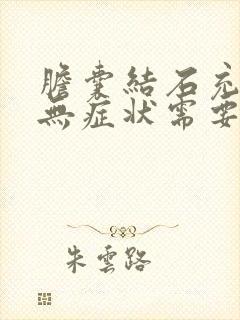 膽囊結石充
無症狀需要
朱雲路